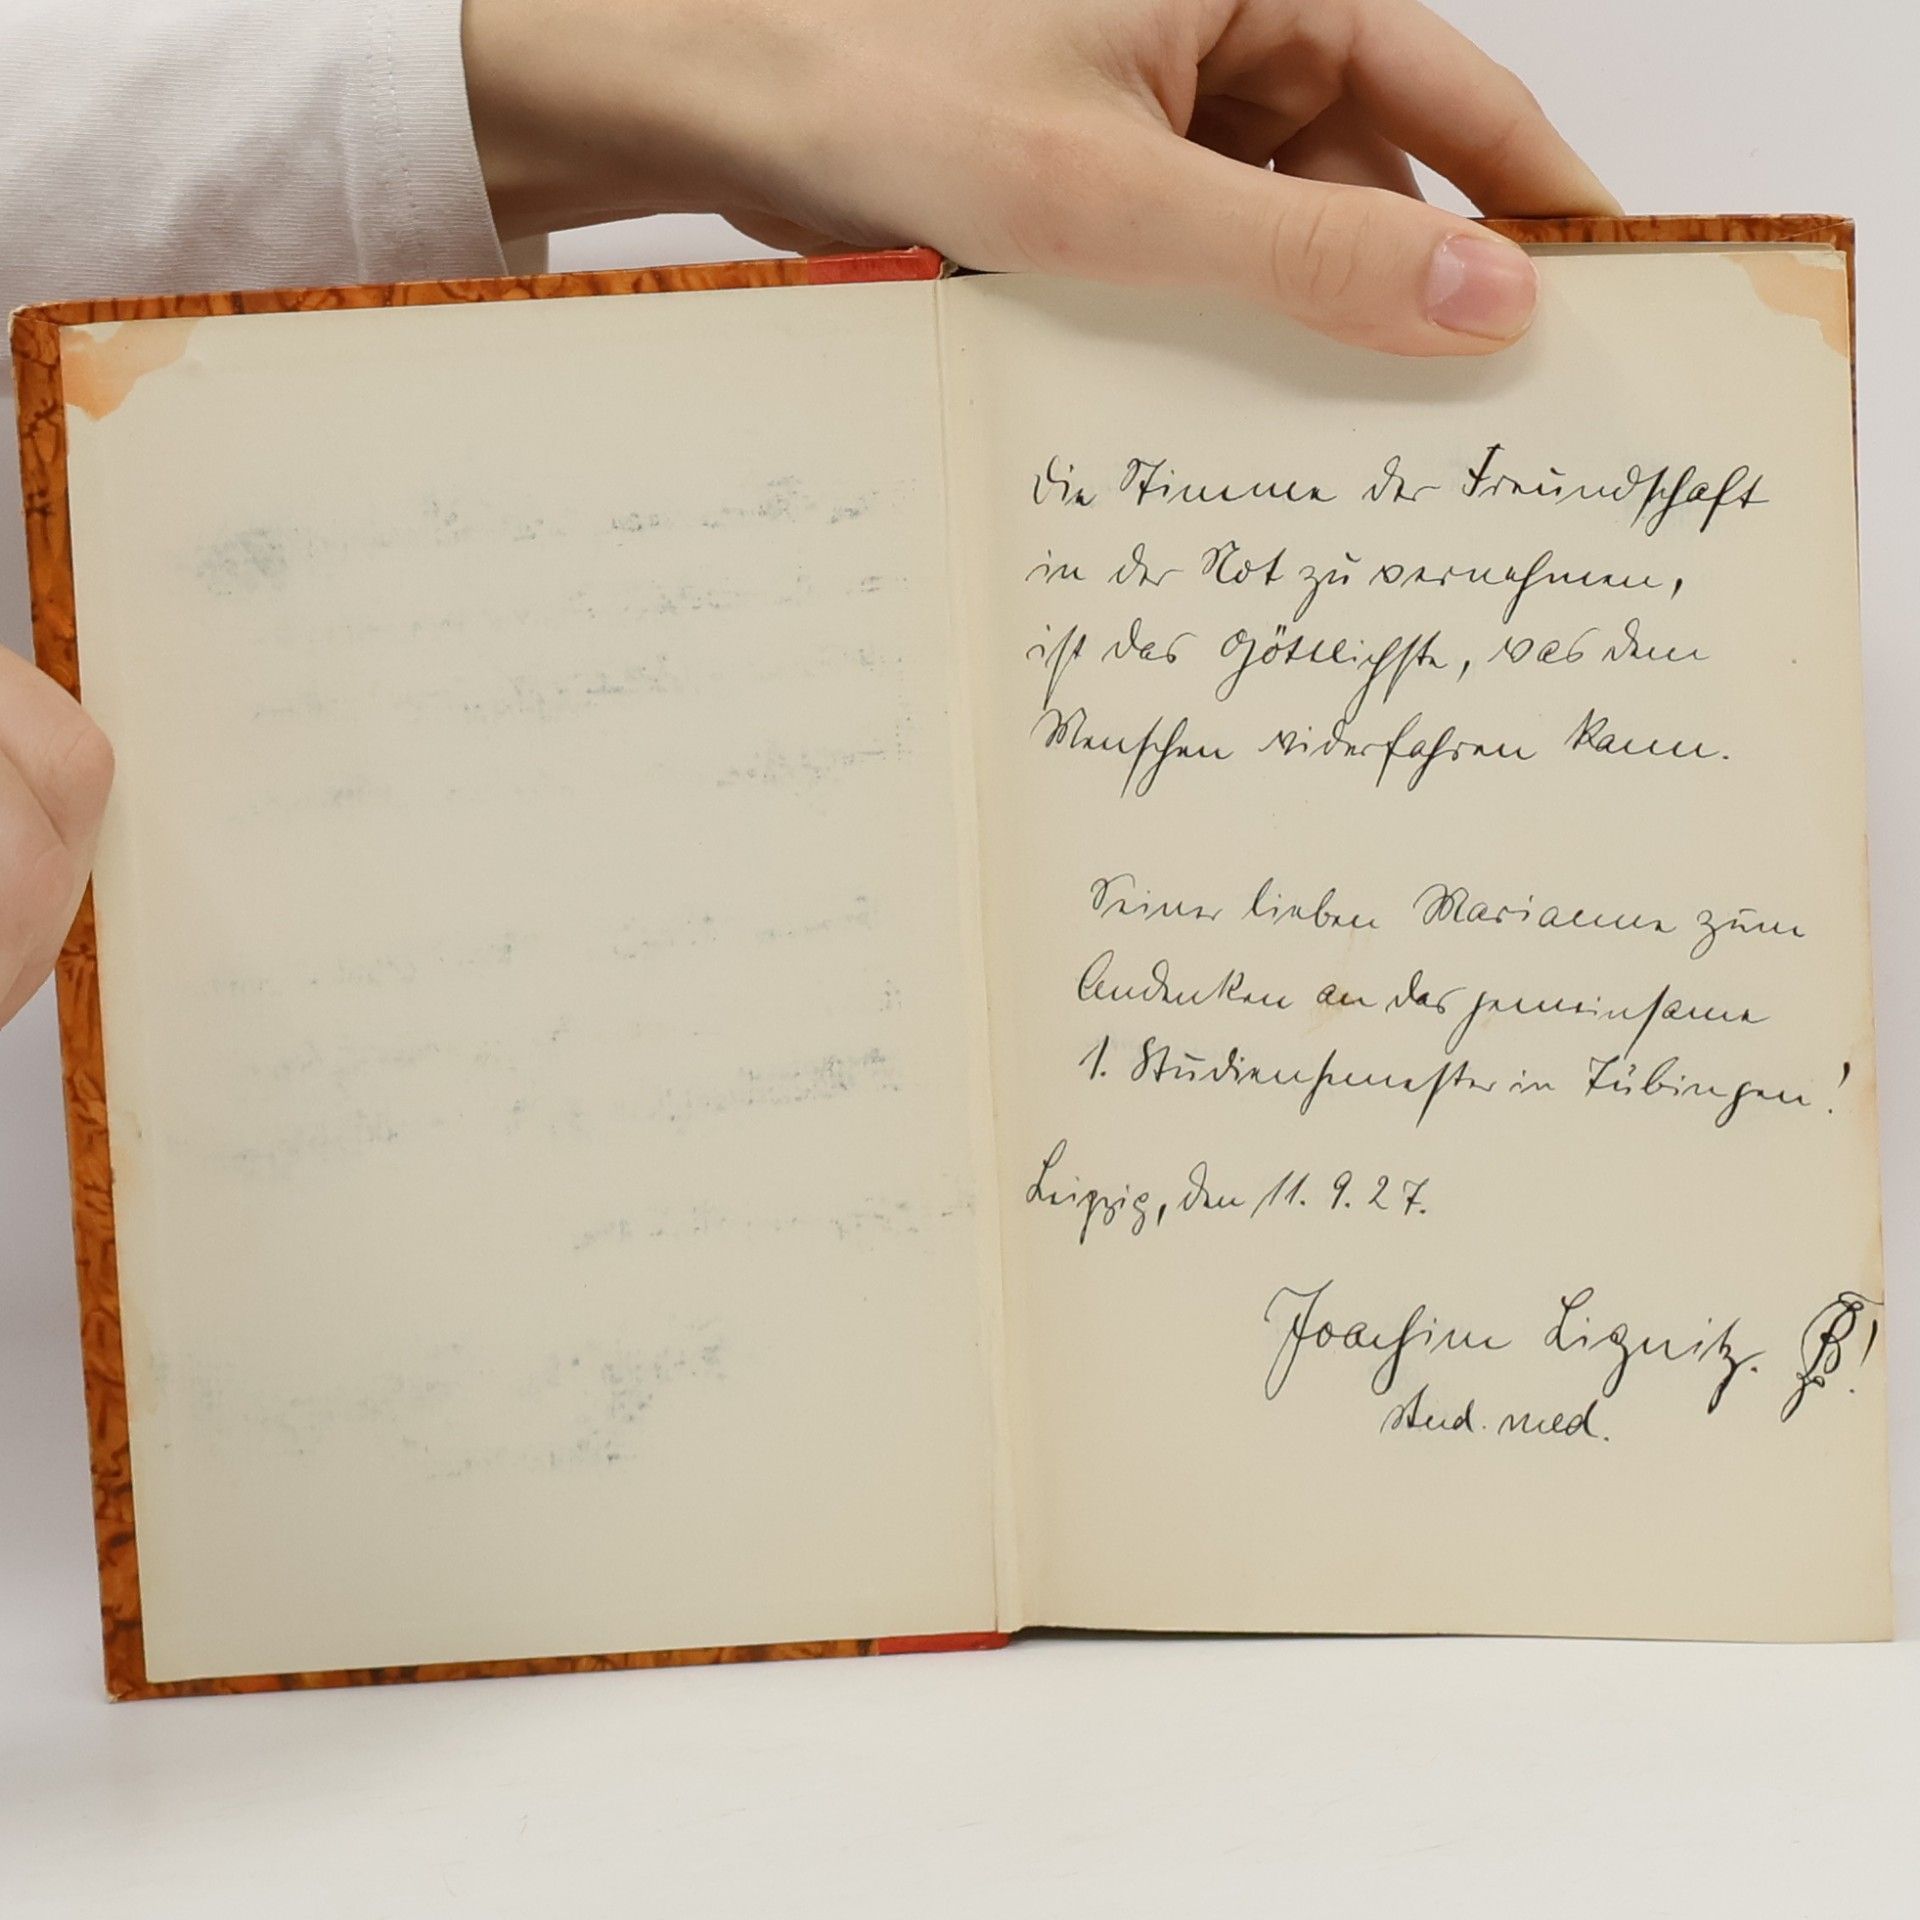 Die Stimme der Freundschaft
in der Not zu vernehmen,
ist das Göttlichste, was dem
Menschen widerfahren kann.
Seiner lieben Marianne zum
Andenken an das gemeinsame
1. Studiensemester in Tübingen!
Leipzig, den 11. 9. 27.
Joachim Lignitz.
stud. med.